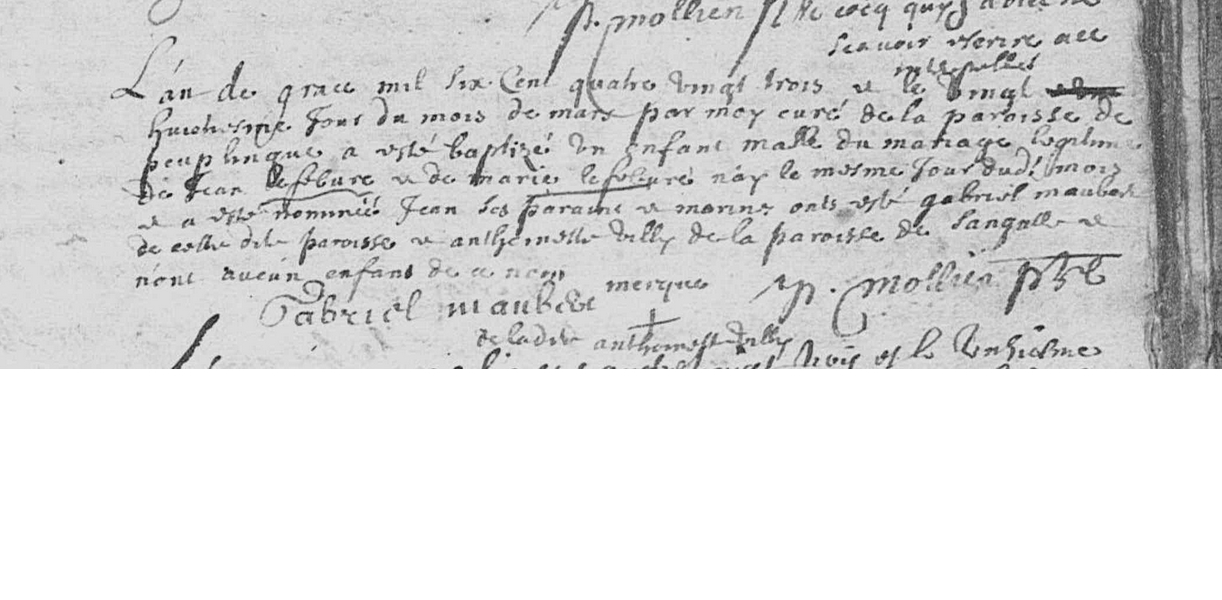 p. mollien pbre le cocq quy a declaré
scavoir escrire ace
interpellés
L'an de grace mil six Cent quatre vingt trois et le vingt
huictiesme Jour du mois de mars par moy curé de la paroisse de
peuplinque a esté baptizé un enfant malle du mariage legitime
de Jean lefebure et de marie lefebure nay le mesme Jour dud. mois
et a esté nommée Jean ses parains et marines onts esté gabriel maubert
de cette dite paroisse et anthoinette Villy de la paroisse de Sangatte et
n'ont aucun enfant de ce nom
Gabriel maubert merque p. mollien pbre
de ladite anthoinette Villy
trois et le Unziesme